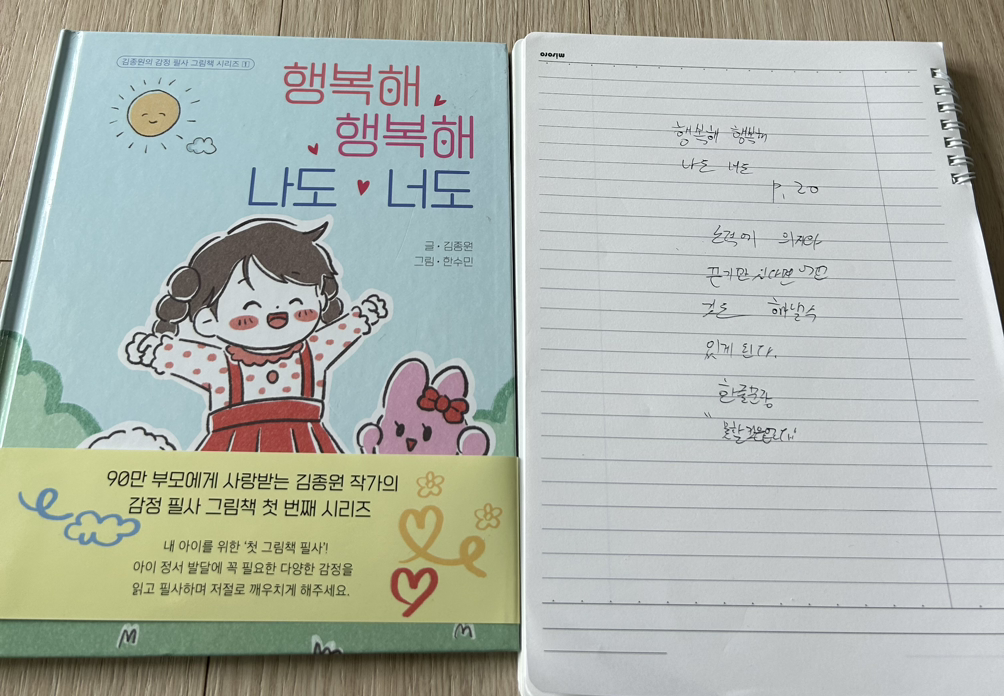 김종원의 감정 필사 그림책 시리즈 ①
행복해
행복해
나도 너도
글·김종원
그림·한수민
90만 부모에게 사랑받는 김종원 작가의
감정 필사 그림책 첫 번째 시리즈
내 아이를 위한 '첫 그림책 필사'!
아이 정서 발달에 꼭 필요한 다양한 감정을
읽고 필사하며 저절로 깨우치게 해주세요.
miroro
행복해 행복해
나도 너도
p. 20
노력에 의지와
끈기만 있다면
것도 해낼 수
있게 된다.